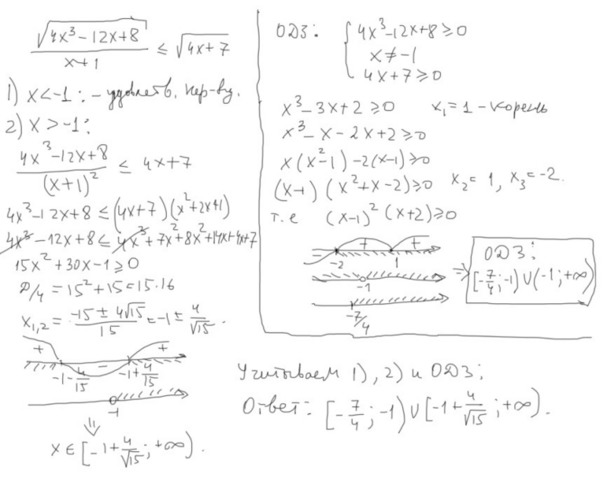 √(4x³-12x+8)/(x+1) ≤ √(4x+7)
1) x<-1: - удовлетв. нер-ву.
2) x>-1:
(4x³-12x+8)/(x+1)² ≤ 4x+7
4x³-12x+8 ≤ (4x+7)(x²+2x+1)
4x³-12x+8 ≤ 4x³+7x²+8x²+14x+4x+7
15x²+30x-1 ≥ 0
D/4 = 15²+15 = 15·16
x₁,₂ = (-15 ± 4√15)/15 = -1 ± 4/√15.
+ - +
-1-4/15 -1+4/15
-1
⇓
x ∈ [-1+4/√15; +∞).
ОДЗ: { 4x³-12x+8 ≥ 0
x ≠ -1
4x+7 ≥ 0
x³-3x+2 ≥ 0 x₁ = 1 - корень
x³-x-2x+2 ≥ 0
x(x²-1)-2(x-1) ≥ 0
(x-1)(x²+x-2) ≥ 0 x₂ = 1, x₃ = -2.
т.е (x-1)²(x+2) ≥ 0
- + +
-2 1
-1
-7/4
⇒ ОДЗ:
[-7/4; -1) ∪ (-1; +∞)
Учитываем 1), 2) и ОДЗ:
Ответ: [-7/4; -1) ∪ [-1+4/√15; +∞).